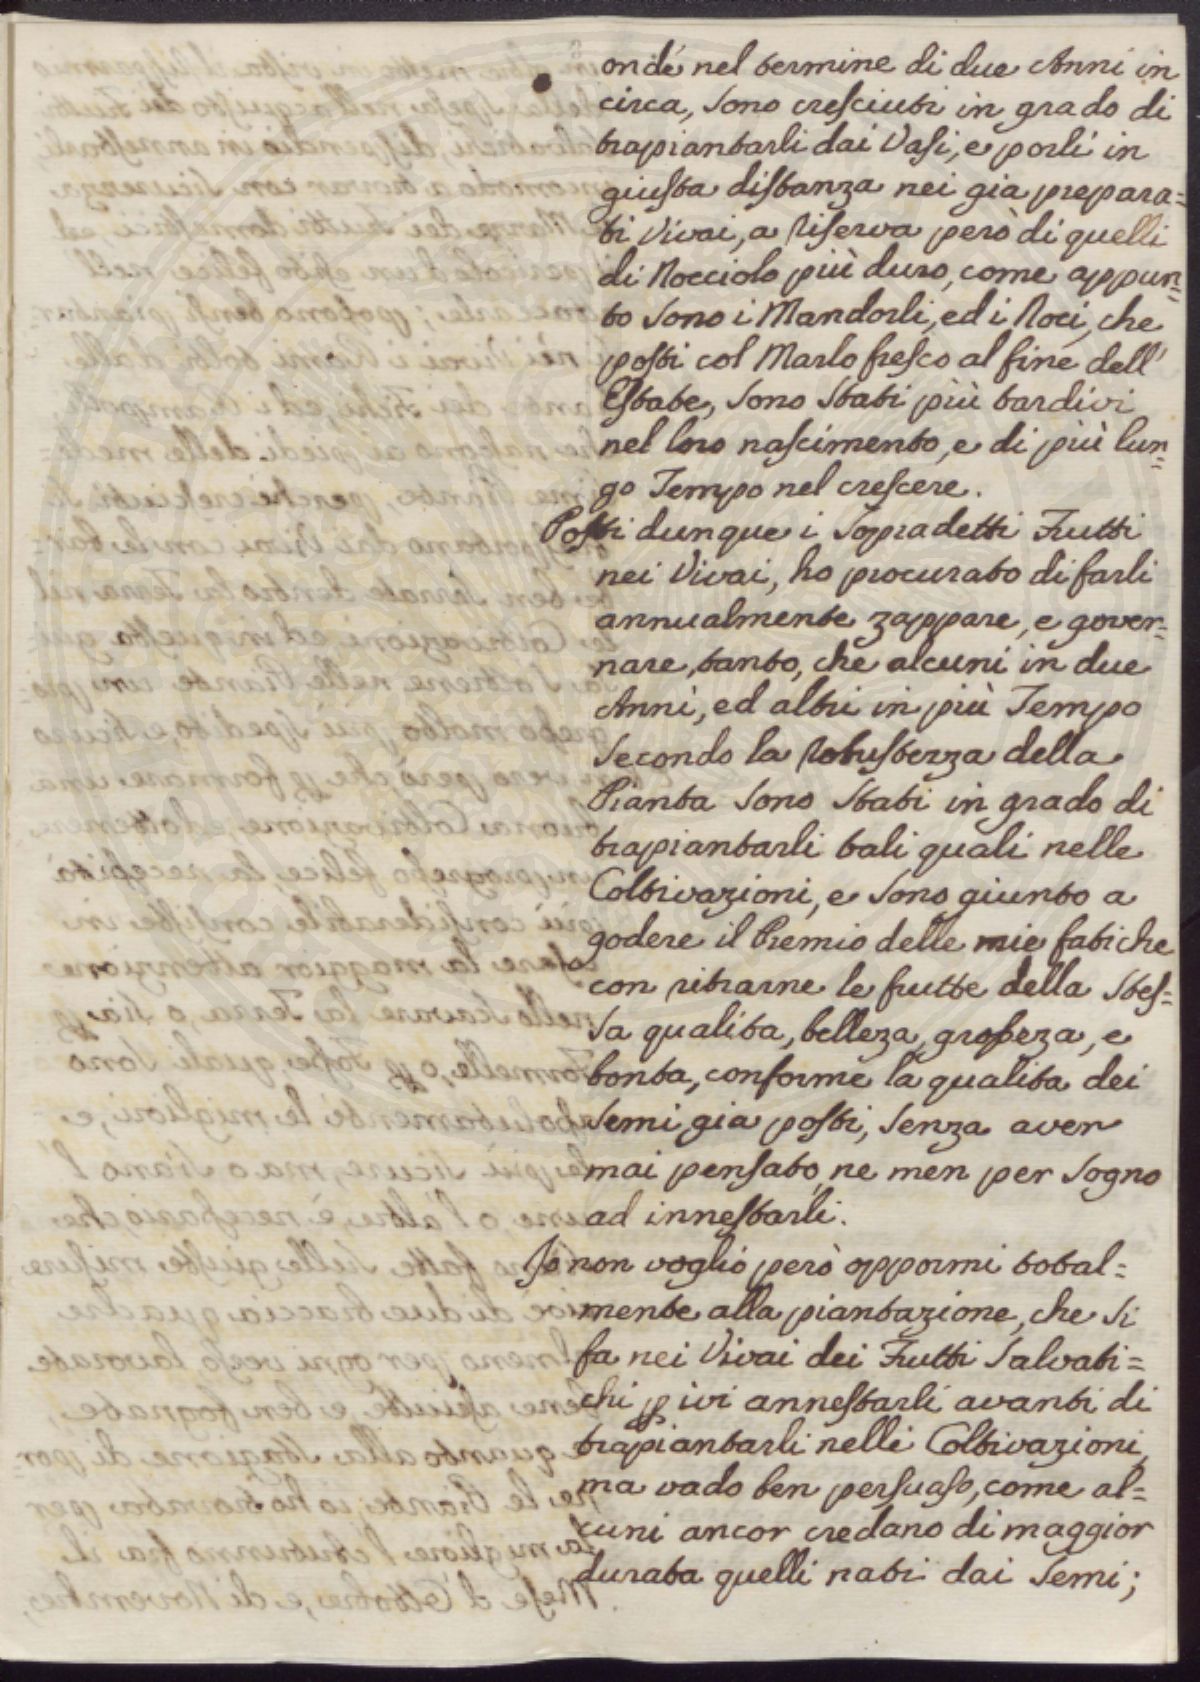 onde nel termine di due Anni in
circa, sono cresciuti in grado di
trapiantarli dai Vasi, e porli in
giusta distanza nei gia prepara=
ti Vivai, a riserva però di quelli
di Nocciolo più duro, come appun=
to sono i Mandorli, ed i Noci, che
posti col Marlo fresco al fine dell'
Estate, sono stati più tardivi
nel loro nascimento, e di più lun=
go Tempo nel crescere.
Posti dunque i sopradetti Frutti
nei Vivai, ho procurato di farli
annualmente zappare, e gover=
nare, tanto, che alcuni in due
Anni, ed altri in più Tempo
secondo la robustezza della
Pianta sono stati in grado di
trapiantarli tali quali nelle
Coltivazioni, e sono giunto a
godere il Premio delle mie fatiche
con ritrarne le frutte della stes=
sa qualita, belleza, grosseza, e
bonta, conforme la qualita dei
semi gia posti, senza aver
mai pensato, ne men per sogno
ad innestarli.
Io non voglio però oppormi total=
mente alla piantazione, che si
fa nei Vivai dei Frutti Salvati=
chi p ivi annestarli avanti di
trapiantarli nelli Coltivazioni,
ma vado ben persuaso, come al=
cuni ancor credano di maggior
durata quelli nati dai semi;